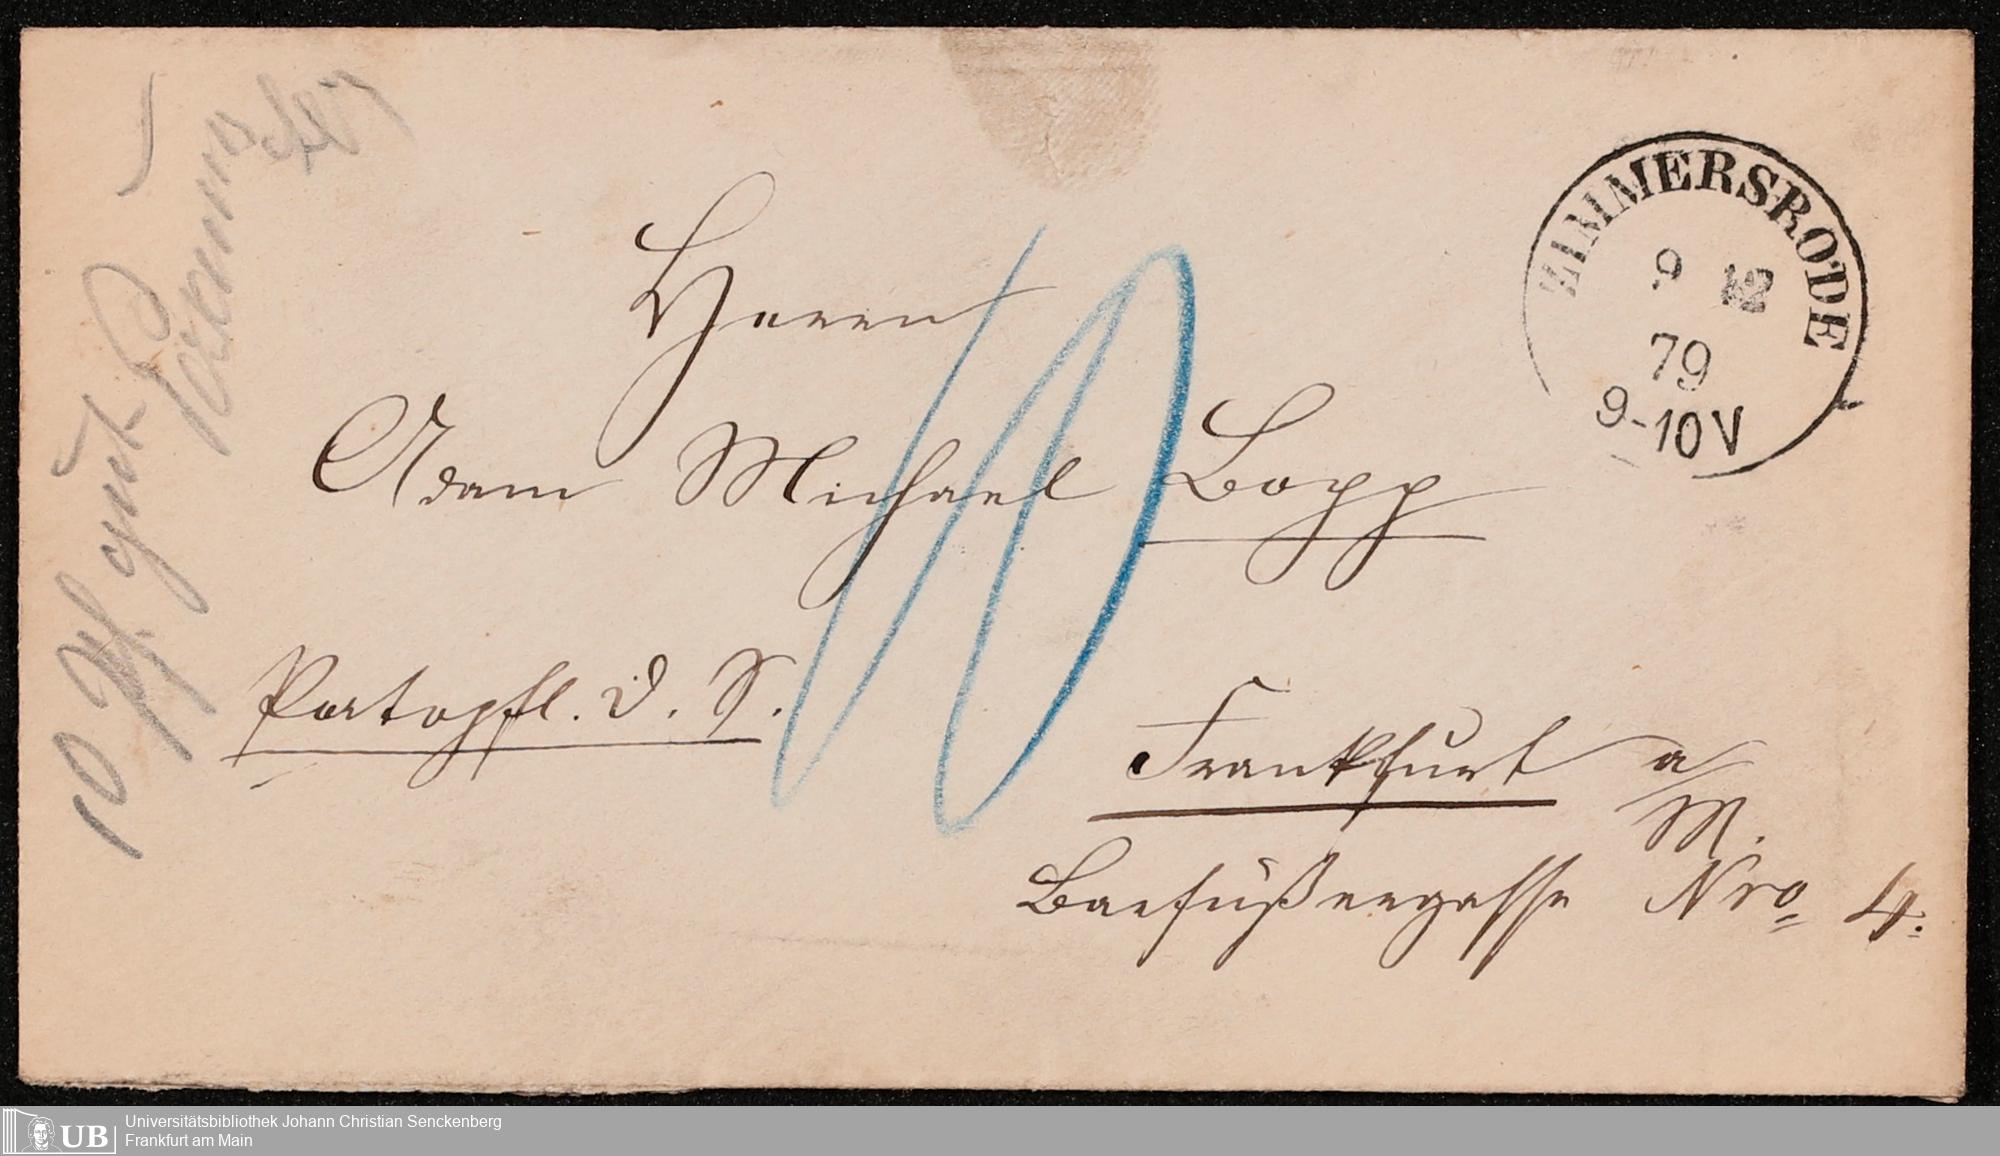 ZIMMERSRODE
9 12
79
9-10V
Herrn
Adam Michael Bopp
Portopfl. D. S.
10
Frankfurt a/M.
Barfüßergasse Nro 4.
10 Pf
Universitätsbibliothek Johann Christian Senckenberg
Frankfurt am Main
UB